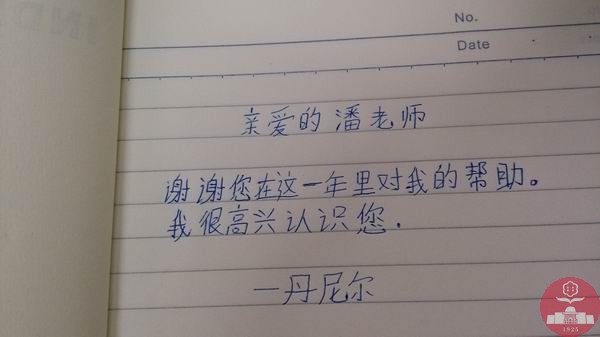 No.
Date
亲爱的潘老师
谢谢您在这一年里对我的帮助。
我很高兴认识您.
—丹尼尔